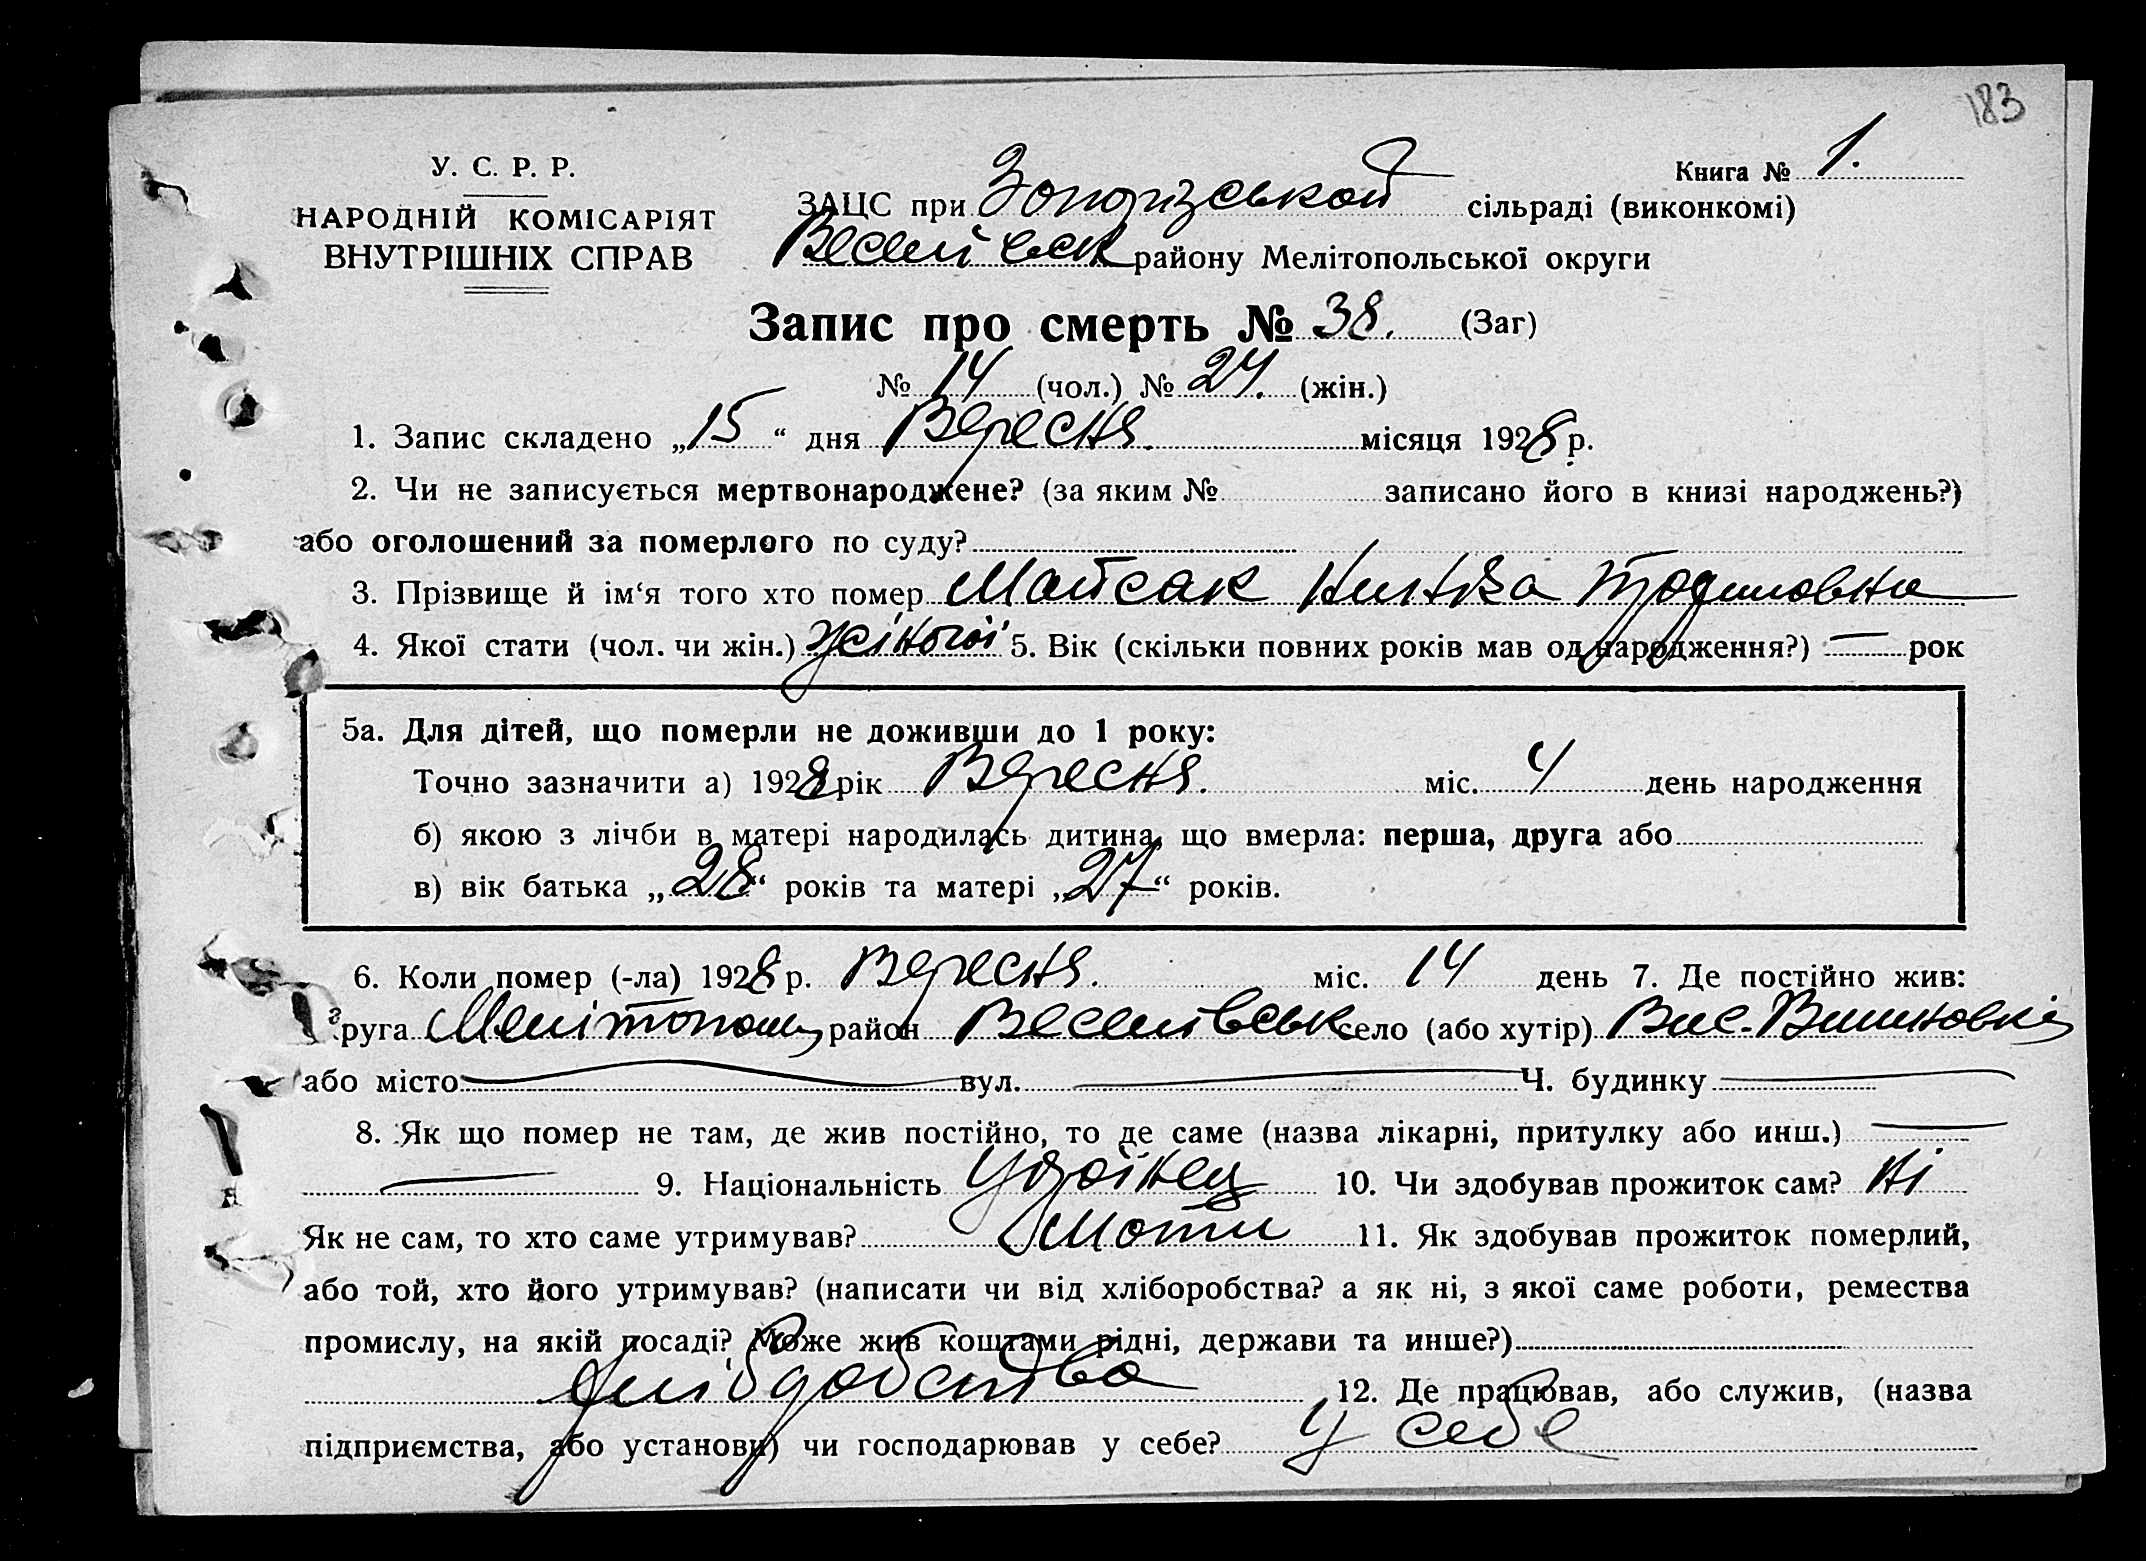 183
У. С. Р. Р.
НАРОДНІЙ КОМІСАРІЯТ
ВНУТРІШНІХ СПРАВ
Книга № 1.
ЗАЦС при сільраді (виконкомі)
району Мелітопольської округи
Запис про смерть № 38. (Заг)
№ 14 (чол.) № 24. (жін.)
1. Запис складено „15“ дня Вересня місяця 1928 р.
2. Чи не записується мертвонароджене? (за яким № записано його в книзі народжень?)
або оголошений за померлого по суду?
3. Прізвище й ім‘я того хто помер Майсак
4. Якої стати (чол. чи жін.) жіночої 5. Вік (скільки повних років мав од народження?) — рок
5а. Для дітей, що померли не доживши до 1 року:
Точно зазначити а) 1928 рік Вересня. міс. 4 день народження
б) якою з лічби в матері народилась дитина, що вмерла: перша, друга або
в) вік батька „28“ років та матері „27“ років.
6. Коли помер (-ла) 1928 р. Вересня. міс. 14 день 7. Де постійно жив:
руга район Веселівськ село (або хутір)
або місто — вул. — Ч. будинку —
8. Як що помер не там, де жив постійно, то де саме (назва лікарні, притулку або инш.) —
— 9. Національність Українец 10. Чи здобував прожиток сам? Ні
Як не сам, то хто саме утримував? Мати 11. Як здобував прожиток померлий,
або той, хто його утримував? (написати чи від хліборобства? а як ні, з якої саме роботи, ремества
промислу, на якій посаді? Може жив коштами рідні, держави та инше?)
12. Де працював, або служив, (назва
підприємства, або установи) чи господарював у себе? У себе